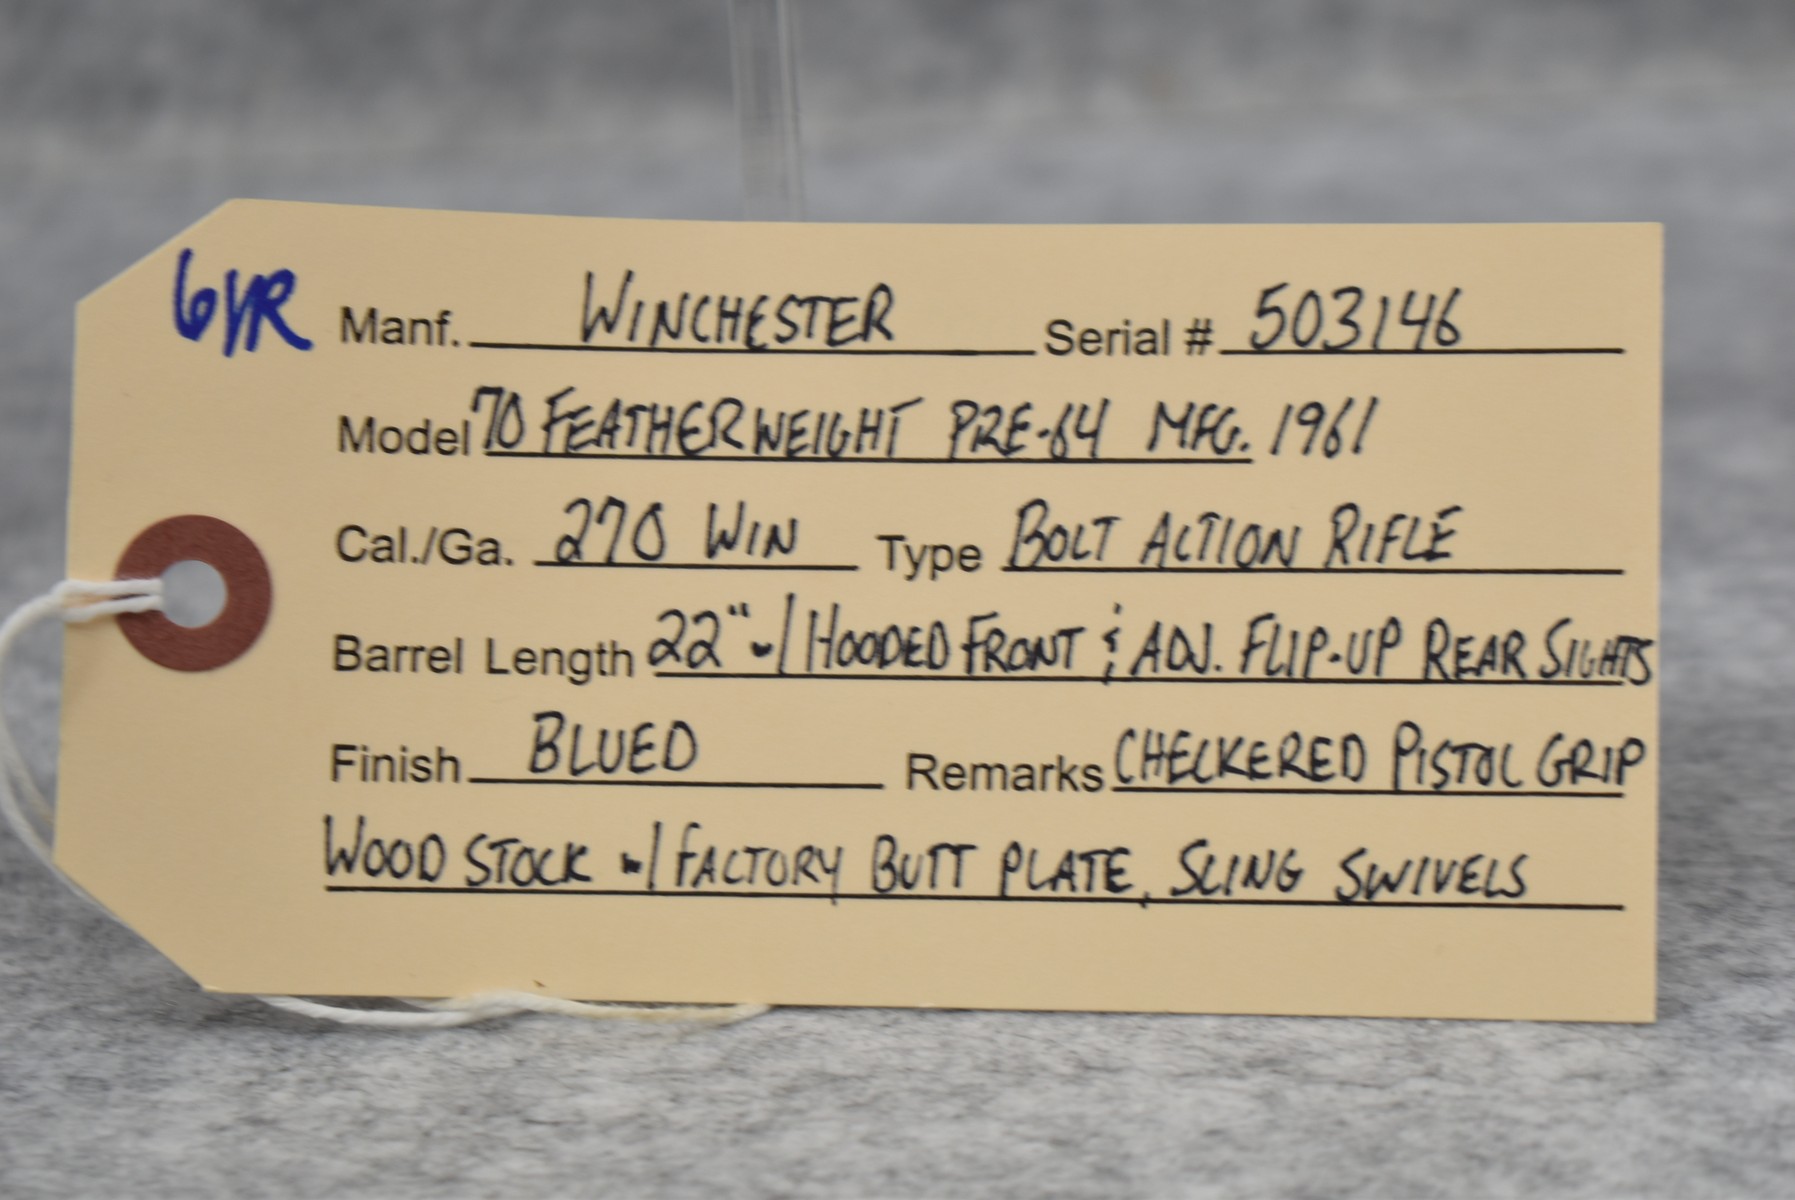 6YR Manf. WINCHESTER Serial # 503146
Model 70 FEATHERWEIGHT PRE-64 MFG. 1961
Cal./Ga. 270 WIN Type BOLT ACTION RIFLE
Barrel Length 22" w/ HOODED FRONT & ADJ. FLIP-UP REAR SIGHTS
Finish BLUED Remarks CHECKERED PISTOL GRIP
WOOD STOCK w/ FACTORY BUTT PLATE, SLING SWIVELS